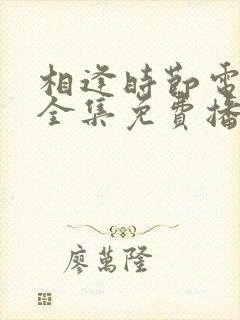 相逢時節電
全集免費播
廖萬隆